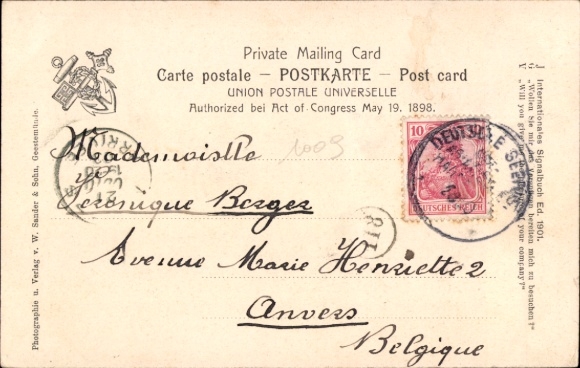 Private Mailing Card
Carte postale — POSTKARTE — Post card
UNION POSTALE UNIVERSELLE
Authorized bei Act of Congress May 19. 1898.
1009
Mademoiselle
Veronique Berger
Avenue Marie Henriette 2
Anvers
Belgique
10
DEUTSCHES REICH
DEUTSCHE SEEPOST
118
Photographie u. Verlag v. W. Sander & Sohn, Geestemünde.
J Internationales Signalbuch Ed. 1901.
G „Wollen Sie mir das Vergnügen bereiten mich zu besuchen?"
V „Will you give me the pleasure of your company?"